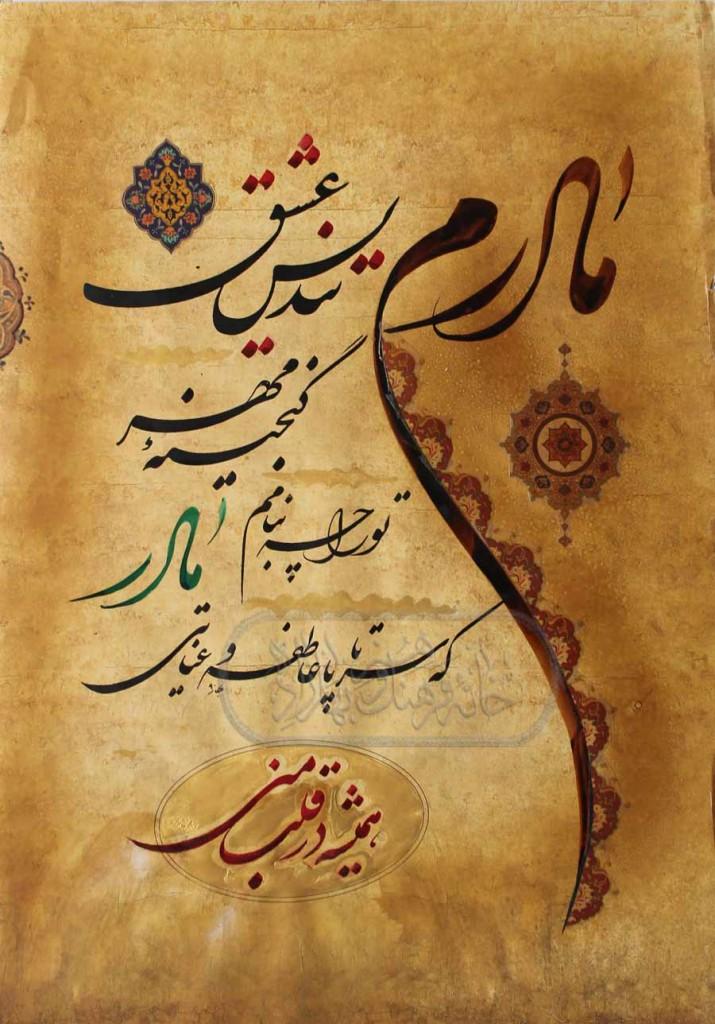 مادرم
تندیس عشق
گنجینهٔ مهر
تو را چه بنامم
مادر
که سر تا پا عاطفه و عنایتی
همیشه در قلب منی
خانه فرهنگ و هنر